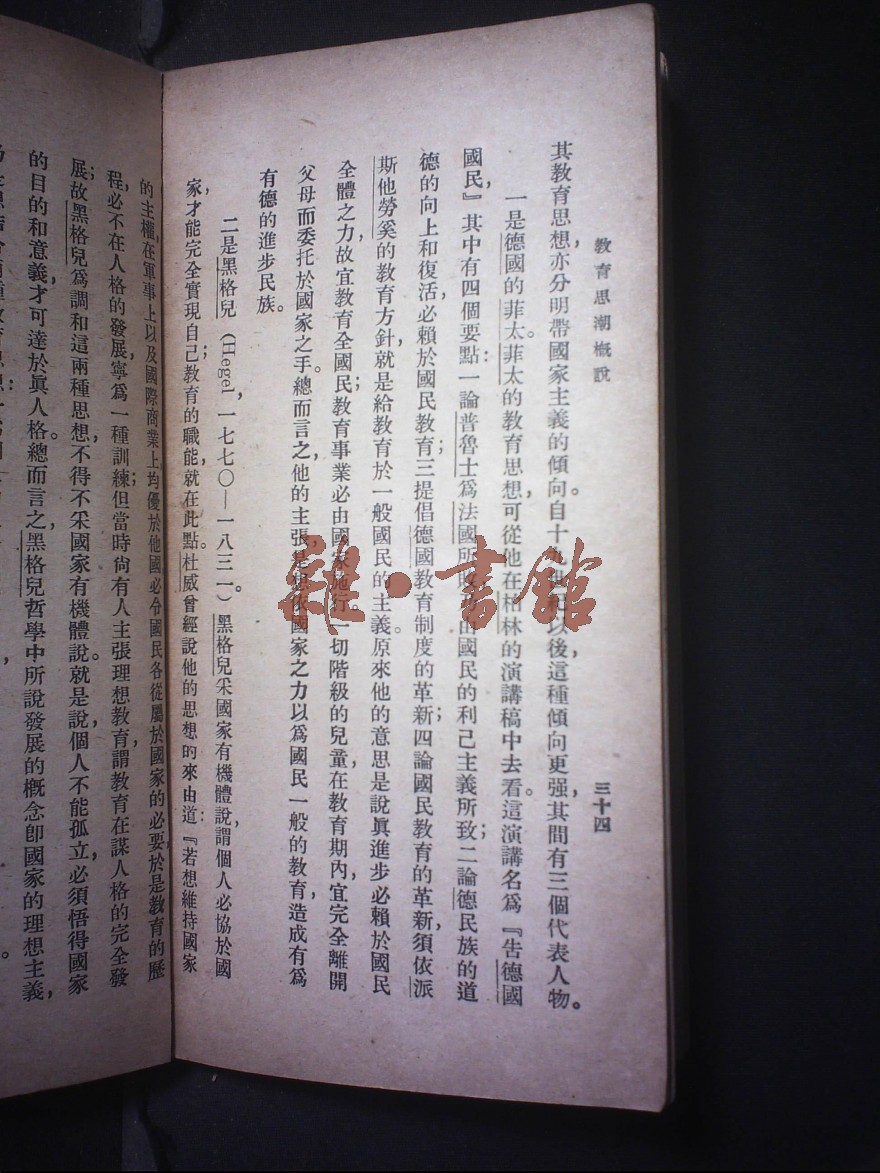 教育思潮概說
三十四
其教育思想，亦分明帶國家主義的傾向。自十九世紀以後，這種傾向更强，其間有三個代表人物。
一是德國的菲太。菲太的教育思想，可從他在柏林的演講稿中去看。這演講名爲『告德國
國民，』其中有四個要點：一論普魯士爲法國所敗，由國民的利己主義所致；二論德民族的道
德的向上和復活，必賴於國民教育；三提倡德國教育制度的革新；四論國民教育的革新，須依派
斯他勞奚的教育方針，就是給教育於一般國民的主義。原來他的意思是說眞進步必賴於國民
全體之力，故宜教育全國民；教育事業必由國家施行。一切階級的兒童，在教育期內，宜完全離開
父母而委托於國家之手。總而言之，他的主張，是想依國家之力以爲國民一般的教育，造成有爲
有德的進步民族。
二是黑格兒（Hegel，一七七〇—一八三一）。黑格兒采國家有機體說，謂個人必協於國
家，才能完全實現自己；教育的職能，就在此點。杜威曾經說他的思想的來由道：『若想維持國家
的主權，在軍事上以及國際商業上均優於他國，必令國民各從屬於國家的必要；於是教育的歷
程，必不在人格的發展，寧爲一種訓練；但當時尙有人主張理想教育，謂教育在謀人格的完全發
展；故黑格兒爲調和這兩種思想，不得不采國家有機體說。就是說，個人不能孤立，必須悟得國家
的目的和意義，才可達於眞人格。總而言之，黑格兒哲學中所說發展的概念，卽國家的理想主義，
雜·書館